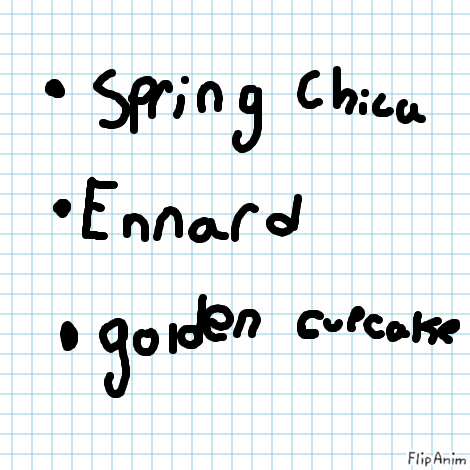 • Spring Chica
• Ennard
• golden cupcake
FlipAnim